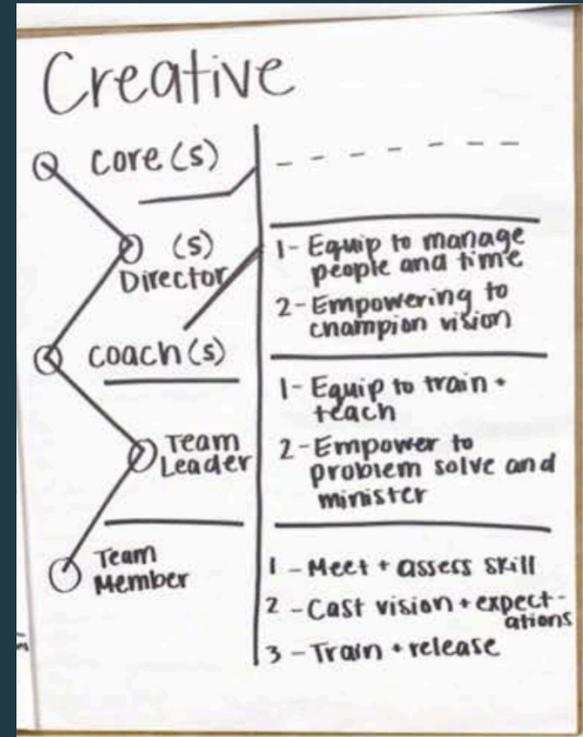 Creative
core(s)
(s)
Director
coach(s)
Team
Leader
Team
Member
1- Equip to manage
people and time
2- Empowering to
champion vision
1- Equip to train +
teach
2- Empower to
problem solve and
minister
1 - Meet + assess skill
2 - Cast vision + expect-
ations
3 - Train + release